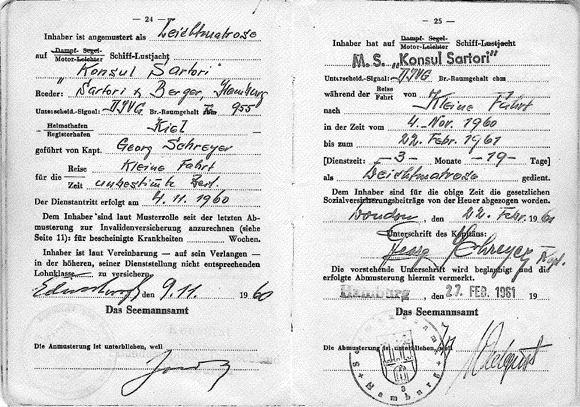 — 24 —
Inhaber ist angemustert als Leichtmatrose
Dampf- Segel-
auf Schiff-Lustjacht
Motor-Leichter
"Konsul Sartori"
Reeder: Sartori & Berger, Hamburg
Unterscheid.-Signal: DJVG Br.-Raumgehalt cbm 955
Heimathafen
Kiel
Registerhafen
geführt von Kapt. Georg Schreyer
Reise Kleine Fahrt
für die
Zeit unbestimmte Zeit.
Der Dienstantritt erfolgt am 4.11.1960
Dem Inhaber sind laut Musterrolle seit der letzten Ab-
musterung zur Invalidenversicherung anzurechnen (siehe
Seite 11): für bescheinigte Krankheiten Wochen.
Inhaber ist laut Vereinbarung — auf sein Verlangen —
in der höheren, seiner Dienststellung nicht entsprechenden
Lohnklasse zu versichern.
den 9.11. 1960
Das Seemannsamt
Die Anmusterung ist unterblieben, weil
— 25 —
Inhaber hat auf Dampf- Segel- Schiff-Lustjacht
Motor-Leichter
M. S. „Konsul Sartori"
Unterscheid.-Signal: DJVG Br.-Raumgehalt cbm
während der Reise von
Fahrt
nach Kleine Fahrt
in der Zeit vom 4. Nov. 1960
bis zum 22. Febr. 1961
[Dienstzeit: -3- Monate -19- Tage]
als Leichtmatrose gedient.
Dem Inhaber sind für die obige Zeit die gesetzlichen
Sozialversicherungsbeiträge von der Heuer abgezogen worden.
London, 22. Febr. 1960
Unterschrift des Kapitäns:
Georg Schreyer, Kapt.
Die vorstehende Unterschrift wird beglaubigt und die
erfolgte Abmusterung hiermit vermerkt.
Hamburg, den 27. FEB. 1961 19
Das Seemannsamt
Die Abmusterung ist unterblieben, weil
Hamburg